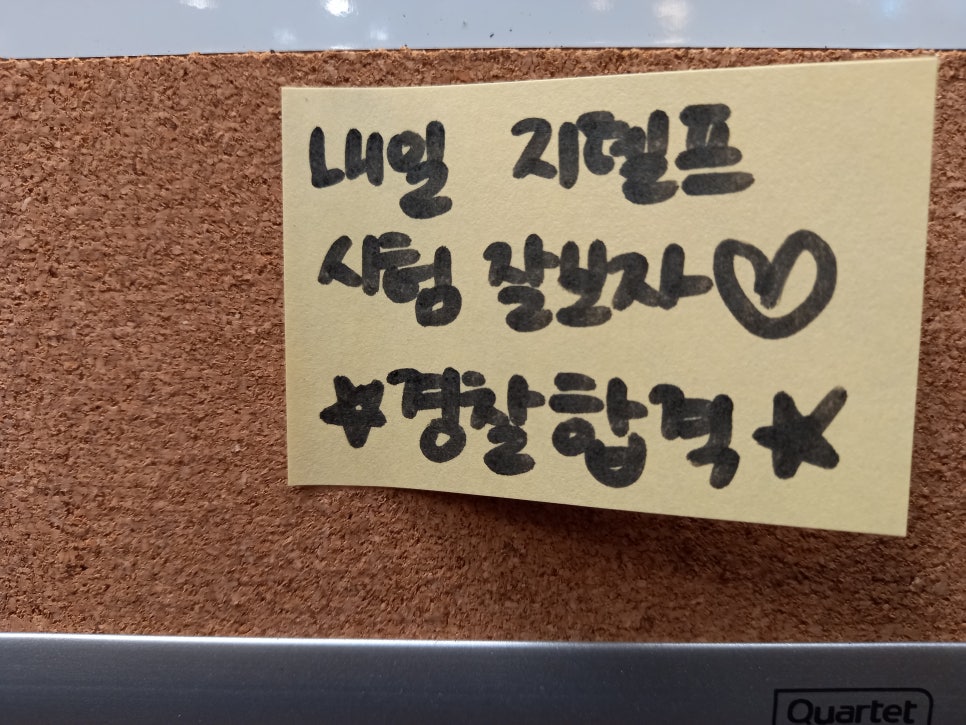 내일 지델프
시험 잘보자♡
☆경찰합격★
Quartet